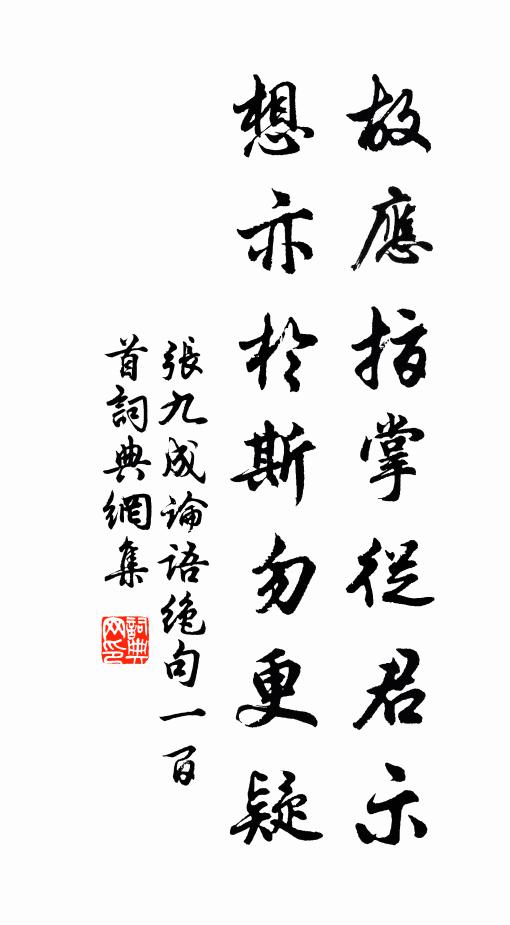 故應指掌從君示
想亦於斯勿更疑
張九成論語絕句一百
首詞典網集
詞典网印